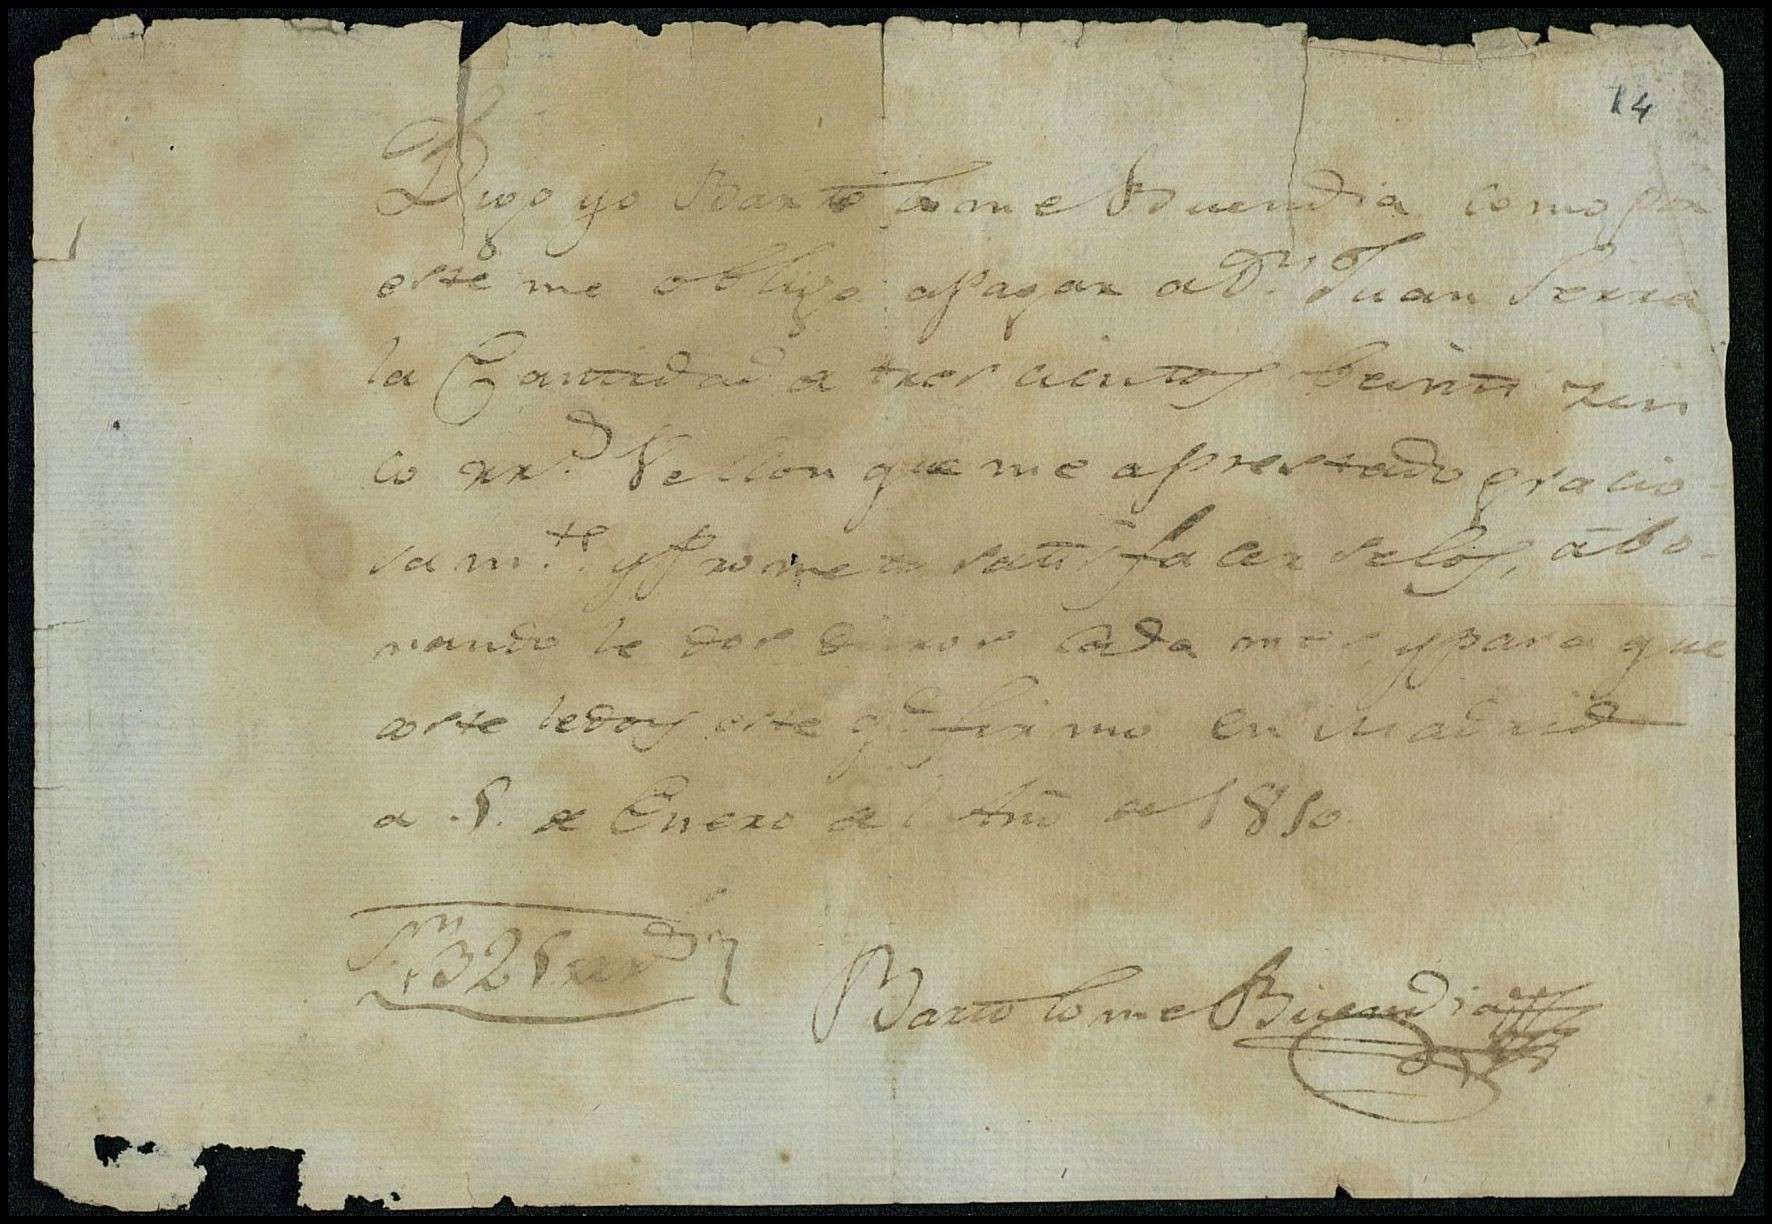 14
Digo yo Bartolome Buendia como por
este me obligo apagar a Dn. Juan Serra
la Cantidad a tres cientos beinte zin
co rr.s Vellon que me aprestado gracio
sam.te y prometo satisfacerselos, abo-
nando le dos duros cada mes, y para que
coste le doy este q.e firmo en Madrid
a 5. de Enero del Año de 1810
Sn 325 rr.s vn
Bartolome Buendia